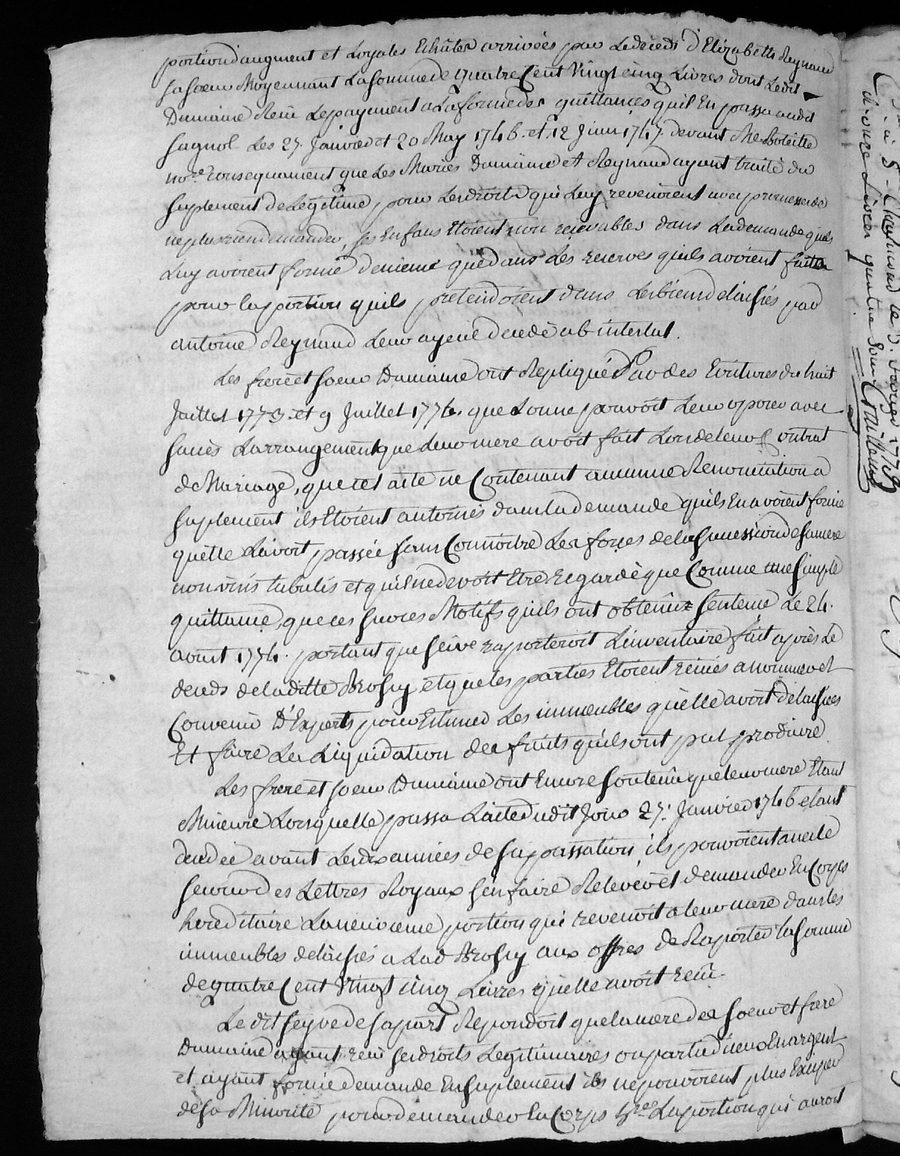 portion d'augment et Loyales Echutes arrivées par Le decéds d'Elizabeth Reynaud
sa soeur Moyennant La somme de quatre Cent Vingt cinq Livres dont Ledit
Dumaine Recu Le payement a La forme des quittances quil En passa audit
sagnol Les 27 Janvier et 20 May 1746. et 12 Juin 1747. devant Me
nore. consequament que Les Mariés Dumaine et Reynaud ayant traité du
suplement de Legitime pour Les droits qui Luy revenoient avec promesse de
ne plus rien demander, ses Enfans Etoient non recevables dans La demande quils
Luy avoient formé de meme que dans Les reserves quils avoient faites
pour La portion quils pretendoient dans Les biens delaissés par
antoine Reynaud Leur ayeul decedé ab intestat.
Les frere et soeur Dumaine ont Repliqué Par des Ecritures du huit
Juillet 1773. et 9 Juillet 1774. que Lon ne pouvoit Leur oposer avec
succés Larrangement que Leur mere avoit fait Lors de leur Contrat
de Mariage, que cet acte ne Contenant aucunne Renonciation a
suplement ils Etoient autorisés dans La demande quils En avoient formé
quelle Lavoit passée sans Connoitre Les forces de la succession de sa mere
non visis tabulis et quil ne devoit Etre regardé que Comme une simple
quittance, que ces sur ces Motifs quils ont obtenüe sentence Le 24.
aoust 1774. portant que seive raporteroit Linventaire fait après Le
deceds de laditte Brossy et que les parties Etoient renvoiés a nommer et
Convenir D'Experts pour Estimer Les immeubles quelle avoit delaissés
Et faire La Liquidation des fruits quils ont put produire.
Les frere et soeur Dumaine ont Encore soutenü que leur mere Etant
Mineure Lorsquelle passa Lacte dudit Jour 27. Janvier 1746 etant
decedée avant Les dix années de sa passation, ils pouvoient avec le
secours des Lettres Royaux sen faire Relever et demander En Corps
hereditaire La neuvieme portion qui revenoit a leur mere dans les
immeubles delaissés a Lad Brossy aux offres de Raporter la somme
de quatre Cent Vingt cinq Livres quelle avoit recüe.
Le dit seyve de sa part Repondoit que la mere des soeur et frere
Dumaine ayant recu ses droits Legitimaires ou partie d'iceux En argent
et ayant formé demande En suplement ils ne pouvoient plus Exciper
de sa Minorité pour demander En Corps hred. La portion qui auroit